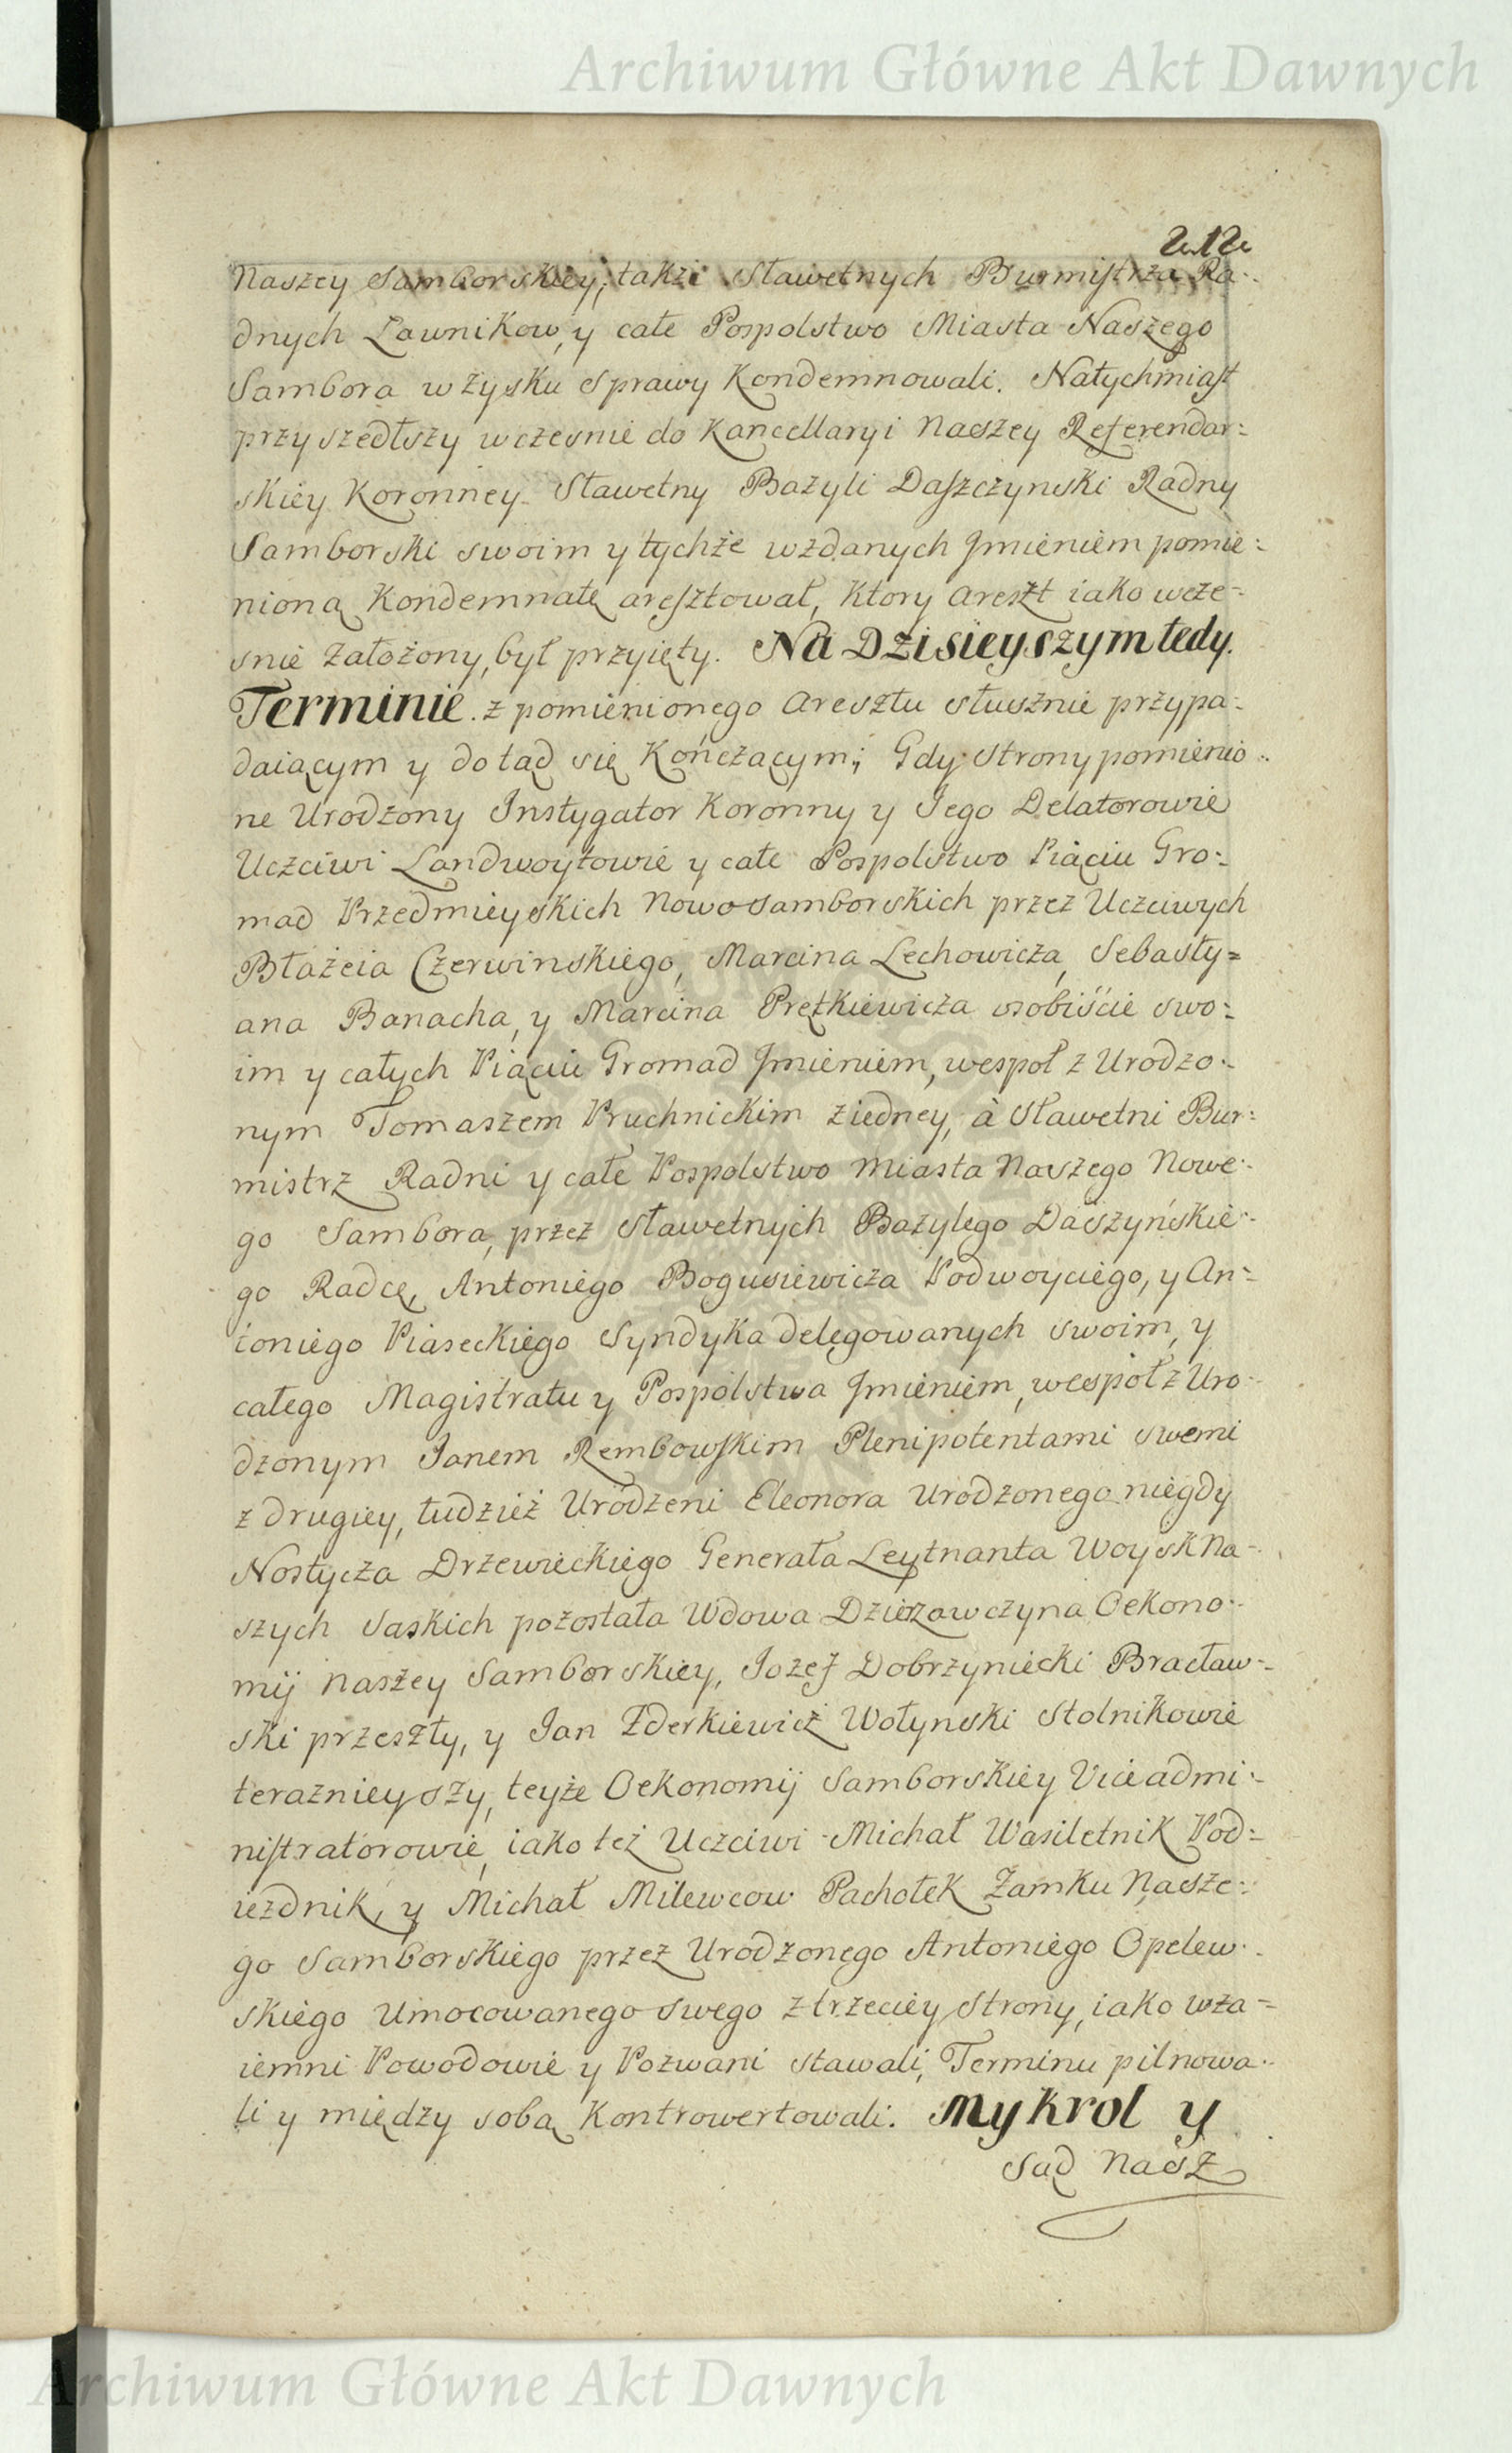 Archiwum Główne Akt Dawnych
212
Naszey Samborskiey; takżi Sławetnych Burmistrza Ra-
dnych Ławnikow, y całe Pospolstwo Miasta Naszego
Sambora w zysku Sprawy Kondemnowali. Natychmiast
przyszedłszy wczesnie do Kancellaryi Naszey Referendar-
skiey Koronney Sławetny Bazyli Daszczynski Radny
Samborski swoim y tychże wzdanych Jmieniem pomie-
nioną Kondemnatę aresztował, Ktory areszt iako wcze-
snie założony, był przyięty. Na Dzisieyszym tedy.
Terminie z pomienionego aresztu słusznie przypa-
daiącym y dotąd się Kończącym; Gdy Strony pomienio-
ne Urodzony Instygator Koronny y Jego Delatorowie
Uczciwi Landwoytowie y całe Pospolstwo Piąciu Gro-
mad Przedmieyskich Nowosamborskich przez Uczciwych
Błażeia Czerwinskiego, Marcina Lechowicza, Sebasty-
ana Banacha, y Marcina Prętkiewicza osobiście swo-
im y całych Piąciu Gromad Jmieniem, wespoł z Urodzo-
nym Tomaszem Pruchnickim ziedney, à Sławetni Bur-
mistrz Radni y całe Pospolstwo Miasta Naszego Nowe-
go Sambora, przez Sławetnych Bazylego Daszyńskie-
go Radcę, Antoniego Bogusiewicza Podwoyciego, y An-
toniego Piaseckiego Syndyka delegowanych swoim, y
całego Magistratu y Pospólstwa Jmieniem, wespół z Uro-
dzonym Janem Rembowskim Plenipotentami swemi
z drugiey, tudzież Urodzeni Eleonora Urodzonego niegdy
Nostycza Drzewieckiego Generała Leytnanta Woysk Na-
szych Saskich pozostała Wdowa Dzierzawczyna Oekono-
mij Naszey Samborskiey, Jozef Dobrzyniecki Bracław-
ski przeszły, y Jan Zderkiewicz Wołynski Stolnikowie
teraznieyszy, teyże Oekonomij Samborskiey Viceadmi-
nistratorowie, iako też Uczciwi Michał Wasiletnik Pod-
iezdnik, y Michał Milewcow Pachołek Zamku Nasze-
go Samborskiego przez Urodzonego Antoniego Opelew-
skiego Umocowanego swego z trzeciey Strony, iako wza-
iemni Powodowie y Pozwani stawali, Terminu pilnowa-
li y między sobą Kontrowertowali. My Krol y
Sąd Nasz
Archiwum Główne Akt Dawnych